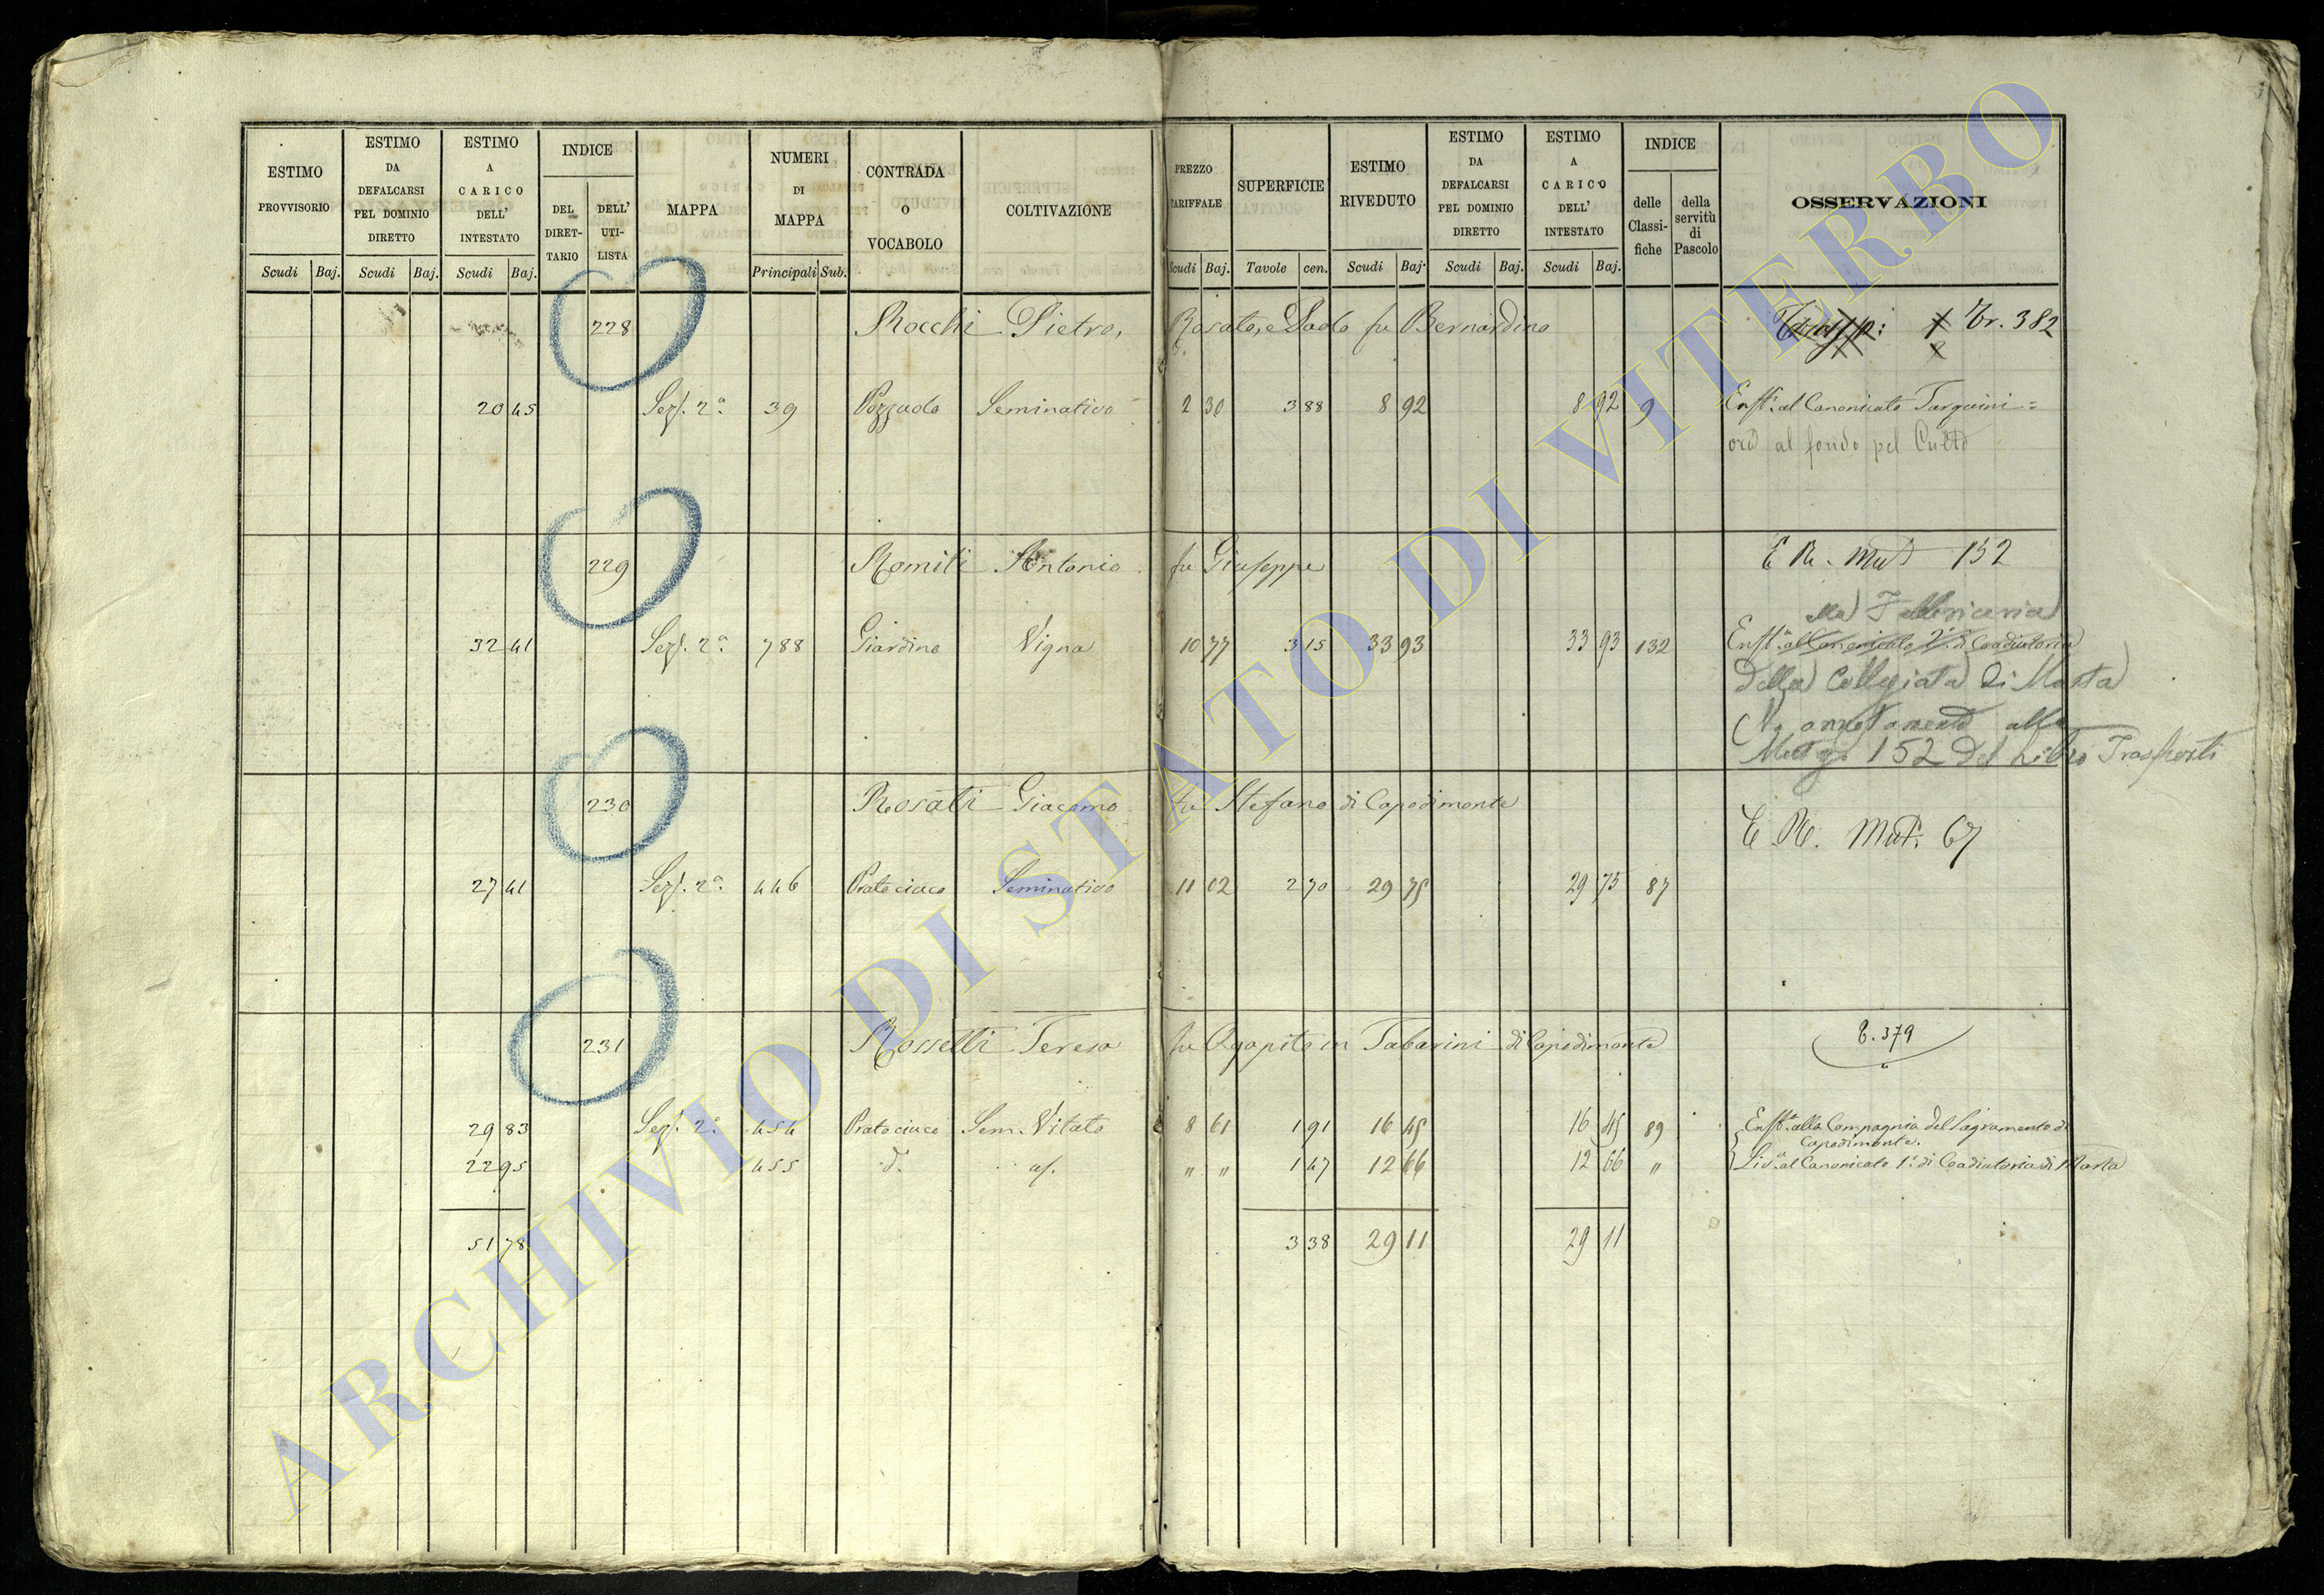 ESTIMO PROVVISORIO
Scudi Baj.
ESTIMO DA DEFALCARSI PEL DOMINIO DIRETTO
Scudi Baj.
ESTIMO A CARICO DELL' INTESTATO
Scudi Baj.
INDICE
DEL DIRET-TARIO
DELL' UTI-LISTA
MAPPA
NUMERI DI MAPPA
Principali Sub.
CONTRADA O VOCABOLO
COLTIVAZIONE
PREZZO TARIFFALE
Scudi Baj.
SUPERFICIE
Tavole cen.
ESTIMO RIVEDUTO
Scudi Baj.
ESTIMO DA DEFALCARSI PEL DOMINIO DIRETTO
Scudi Baj.
ESTIMO A CARICO DELL' INTESTATO
Scudi Baj.
INDICE
delle Classi-fiche
della servitù di Pascolo
OSSERVAZIONI
228 Rocchi Pietro, Rosato, e Paolo fu Bernardino Tr. 382
20 45 Sez. 2ª 39 Pozzuolo Seminativo 2 30 3 88 8 92 8 92 9 Enfit. al Canonicato Tarquini =
ora al fondo pel Culto
229 Romiti Antonio fu Giuseppe E R. Mut 152
alla
32 41 Sez. 2ª 788 Giardino Vigna 10 77 3 15 33 93 33 93 132 Enfit. al Canonicato 2º di Coadiutoria
Della Collegiata di Marta
annotamento alla
152 del Libro Trasporti
230 Rosati Giacomo fu Stefano di Capodimonte
E R. Mut. 67
27 41 Sez. 2ª 446 Pratociuco Seminativo 11 02 2 70 29 75 29 75 87
231 Rosselli Teresa fu Agapito in Tabarini di Capodimonte T. 379
29 83 Sez. 2ª 454 Pratociuco Sem. Vitato 8 61 1 91 16 45 16 45 89 Enfit. alla Compagnia del Sagramento di
Capodimonte.
22 95 455 d. " " 1 47 12 66 12 66 " Liv. al Canonicato 1º di Coadiutoria di Marta
51 78 3 38 29 11 29 11
ARCHIVIO DI STATO DI VITERBO